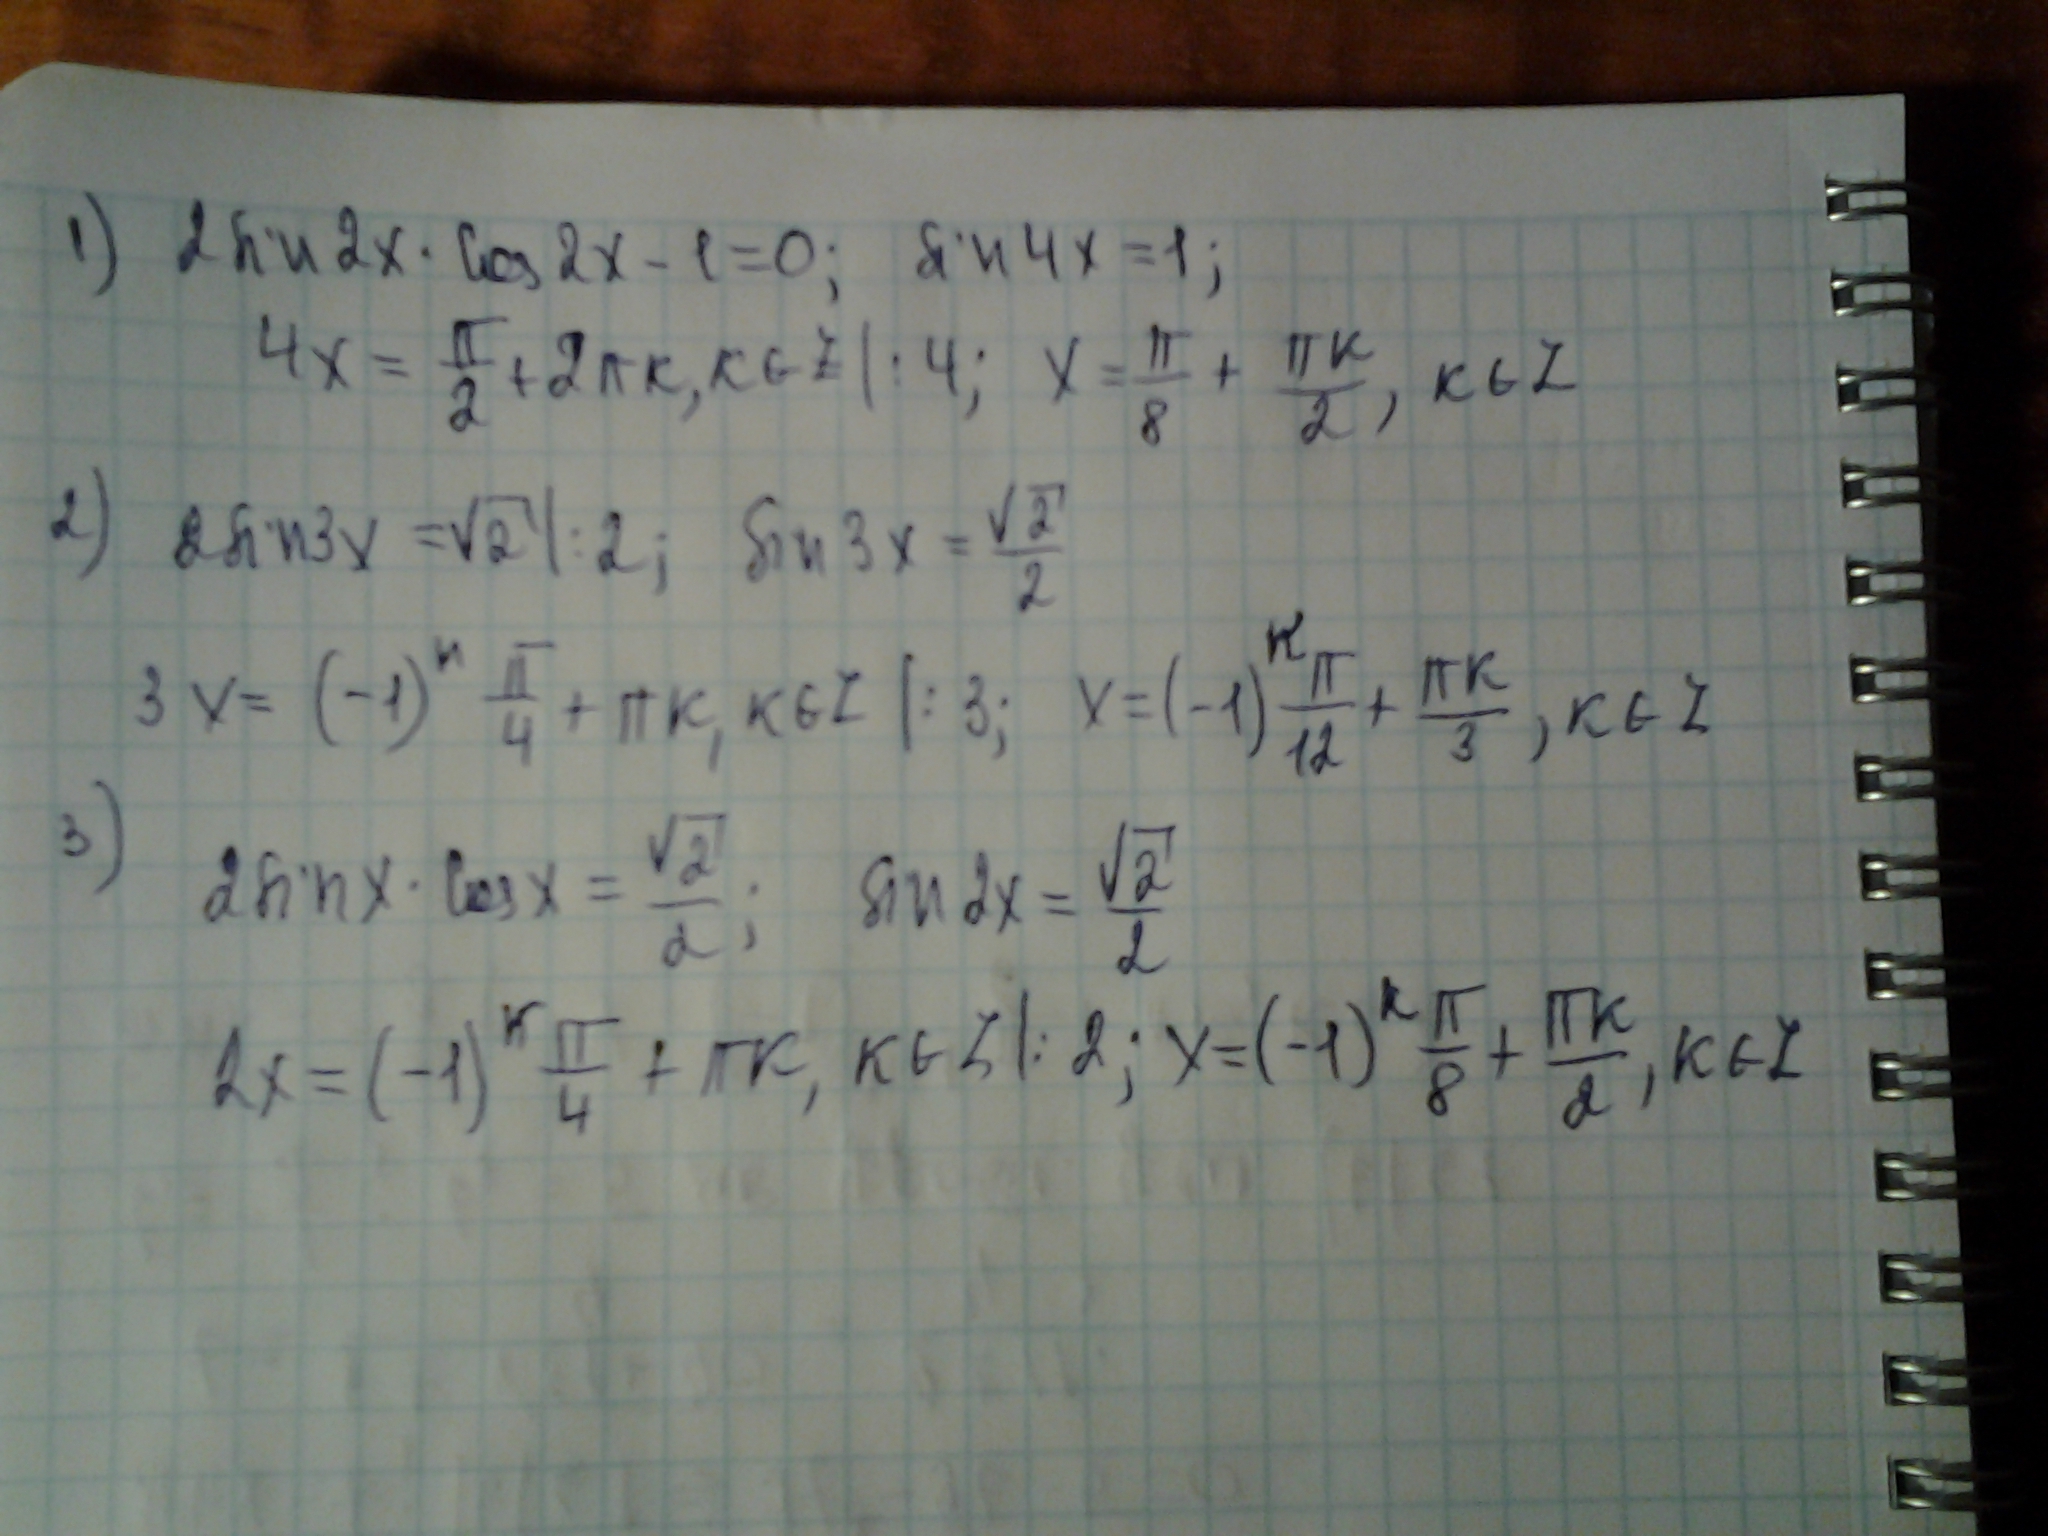 1) 2sin2x·cos2x-1=0; sin4x=1;
4x=π/2+2πк, к∈Z |:4; x=π/8+πк/2, к∈Z
2) 2sin3x=√2 |:2; sin3x=√2/2
3x=(-1)^к π/4+πк, к∈Z |:3; x=(-1)^к π/12+πк/3, к∈Z
3) 2sinx·cosx=√2/2; sin2x=√2/2
2x=(-1)^к π/4+πк, к∈Z |:2; x=(-1)^к π/8+πк/2, к∈Z